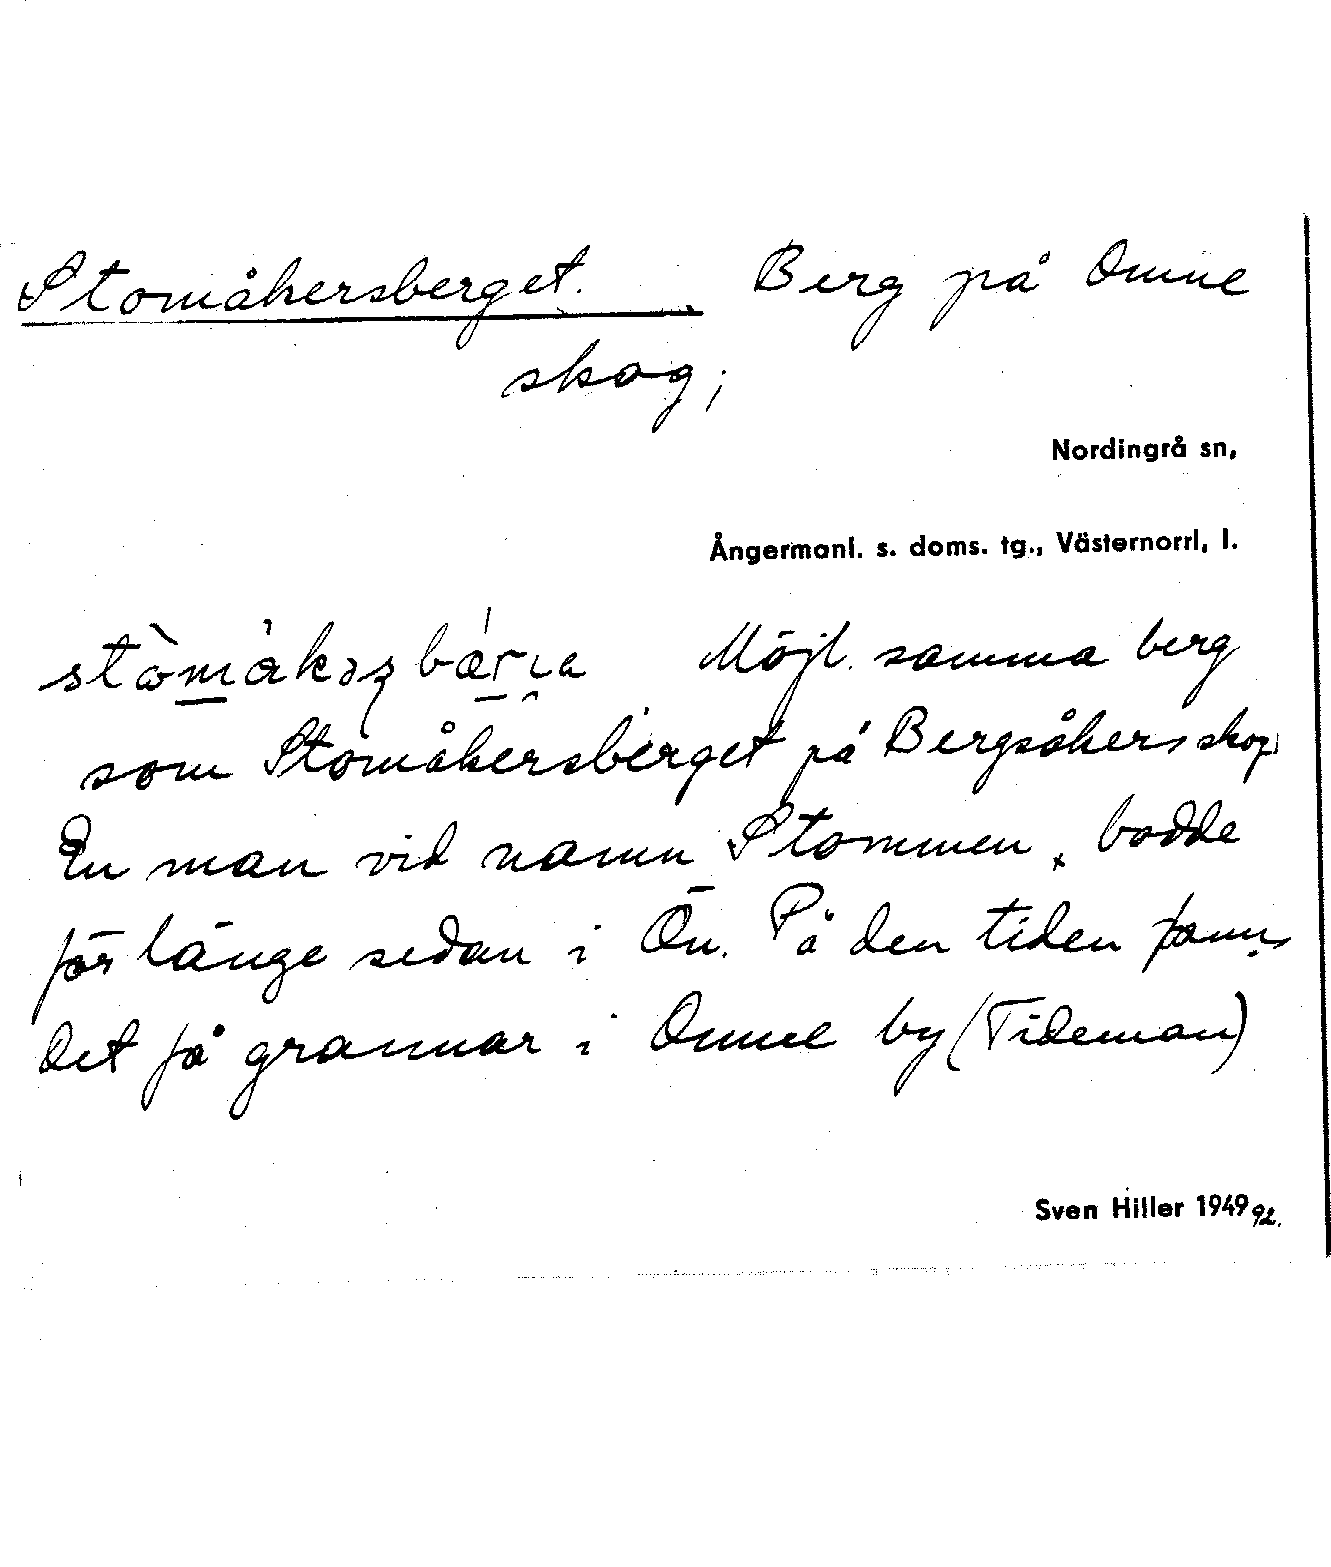 Stomåkersberget. Berg på Omne
skog;
Nordingrå sn,
Ångermanl. s. doms. tg., Västernorrl, l.
Möjl. samma berg
som Stomåkersberget på Bergsåkers skog
En man vid namn Stommen bodde
för länge sedan i Ön. På den tiden fanns
det få grannar i Omne by (Tideman)
Sven Hiller 1949